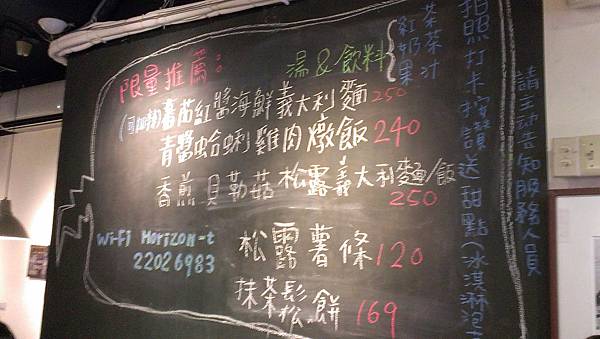 限量推薦:
湯&飲料
紅茶
奶茶
果汁
蕃茄紅醬海鮮義大利麵 250
青醬蛤蜊雞肉燉飯 240
香煎貝勒菇松露義大利麵/飯 250
松露薯條 120
抹茶鬆餅 169
Wi-Fi Horizon-t
22026983
拍照打卡按讚送甜點(冰淇淋泡
請主动告知服務人員